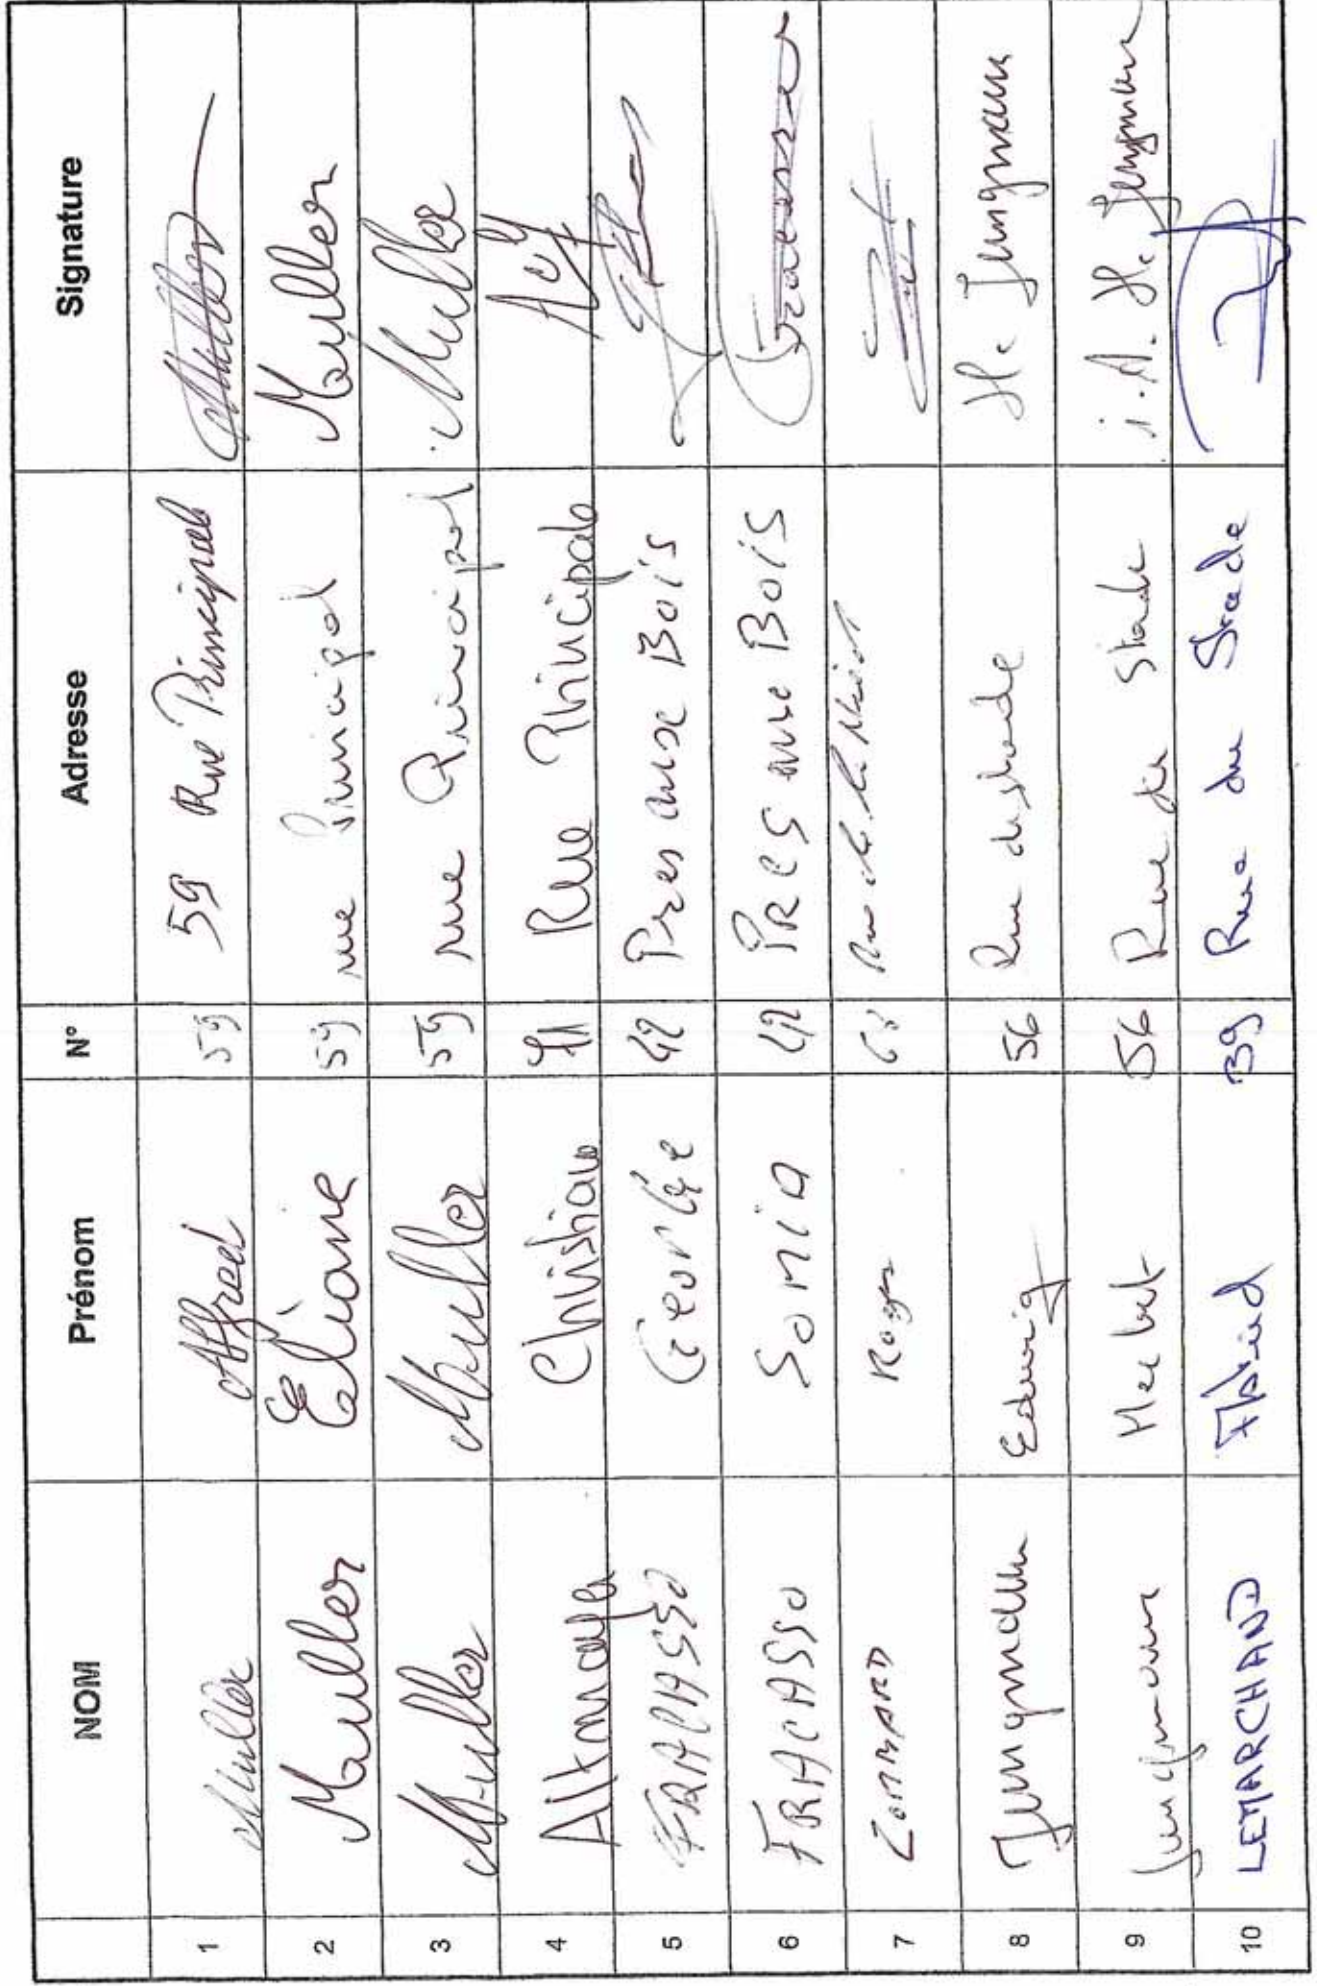 NOM Prénom N° Adresse Signature
1 Muller Alfred 59 59 Rue Principale Muller
2 Muller Eliane 59 rue Principal Muller
3 Muller Muller 59 rue Principal Muller
4 Christian Rue Principale
5 FRACASSO George 42 Pres aux Bois
6 FRACASSO SoniA 42 PRES aux BOIS Fracasso
7 Roger
8 Jungmann Edwig 56 Rue du stade He Jungmann
9 Jungmann 56 Rue du Stade i.A. He Jungmann
10 LEMARCHAND 39 Rue du Stade